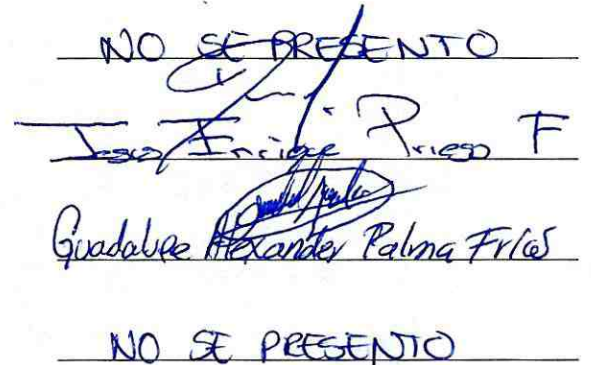 NO SE PRESENTO
Jesus Enrique Prieso F
Guadalupe Alexander Palma Frias
NO SE PRESENTO